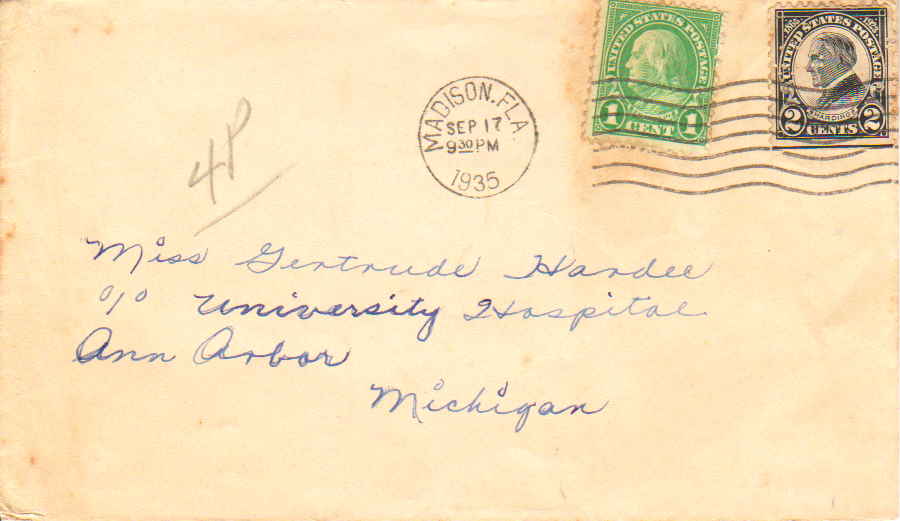 UNITED STATES POSTAGE
1 CENT 1
1865 1923
UNITED STATES POSTAGE
HARDING
2 CENTS 2
MADISON, FLA.
SEP 17
9 30 PM
1935
Miss Gertrude Hardee
o/o University Hospital
Ann Arbor
Michigan